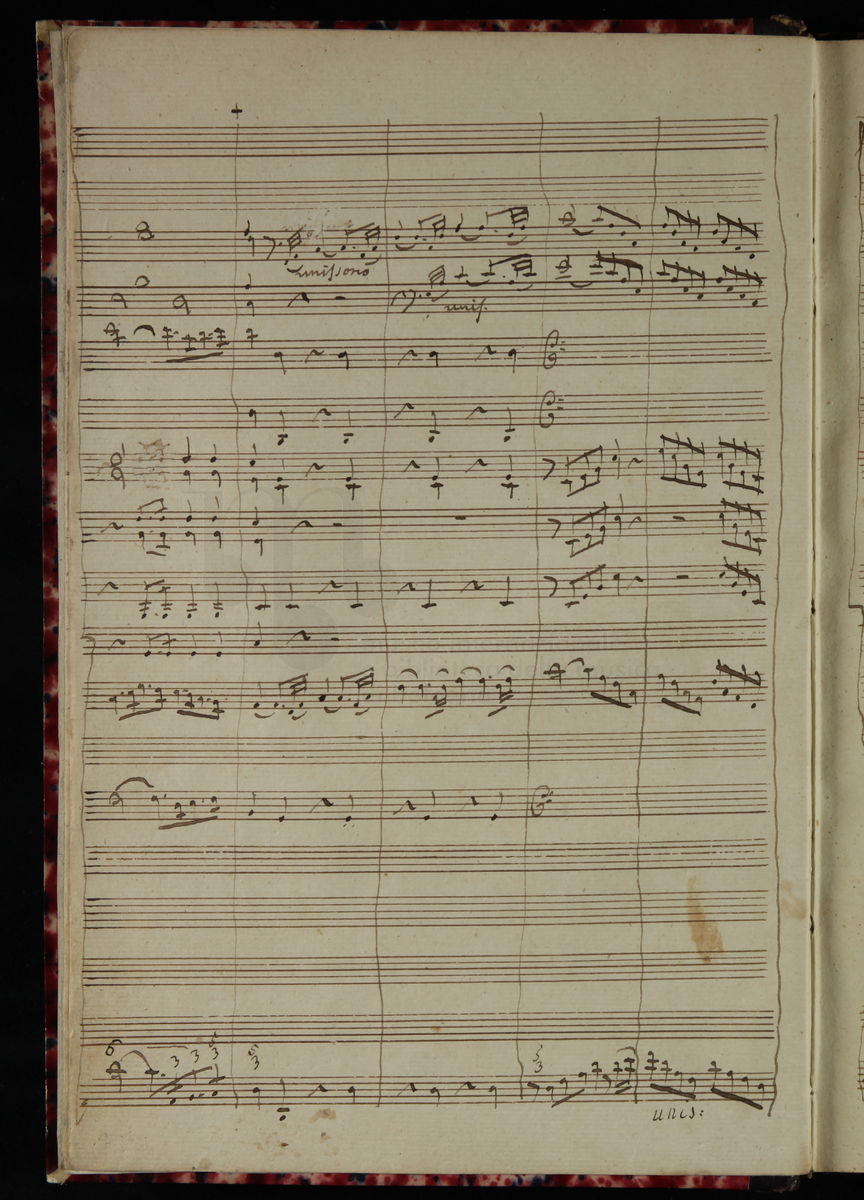 unissono
unis.
6 3 3 5 3
5 3
5 3
unis: